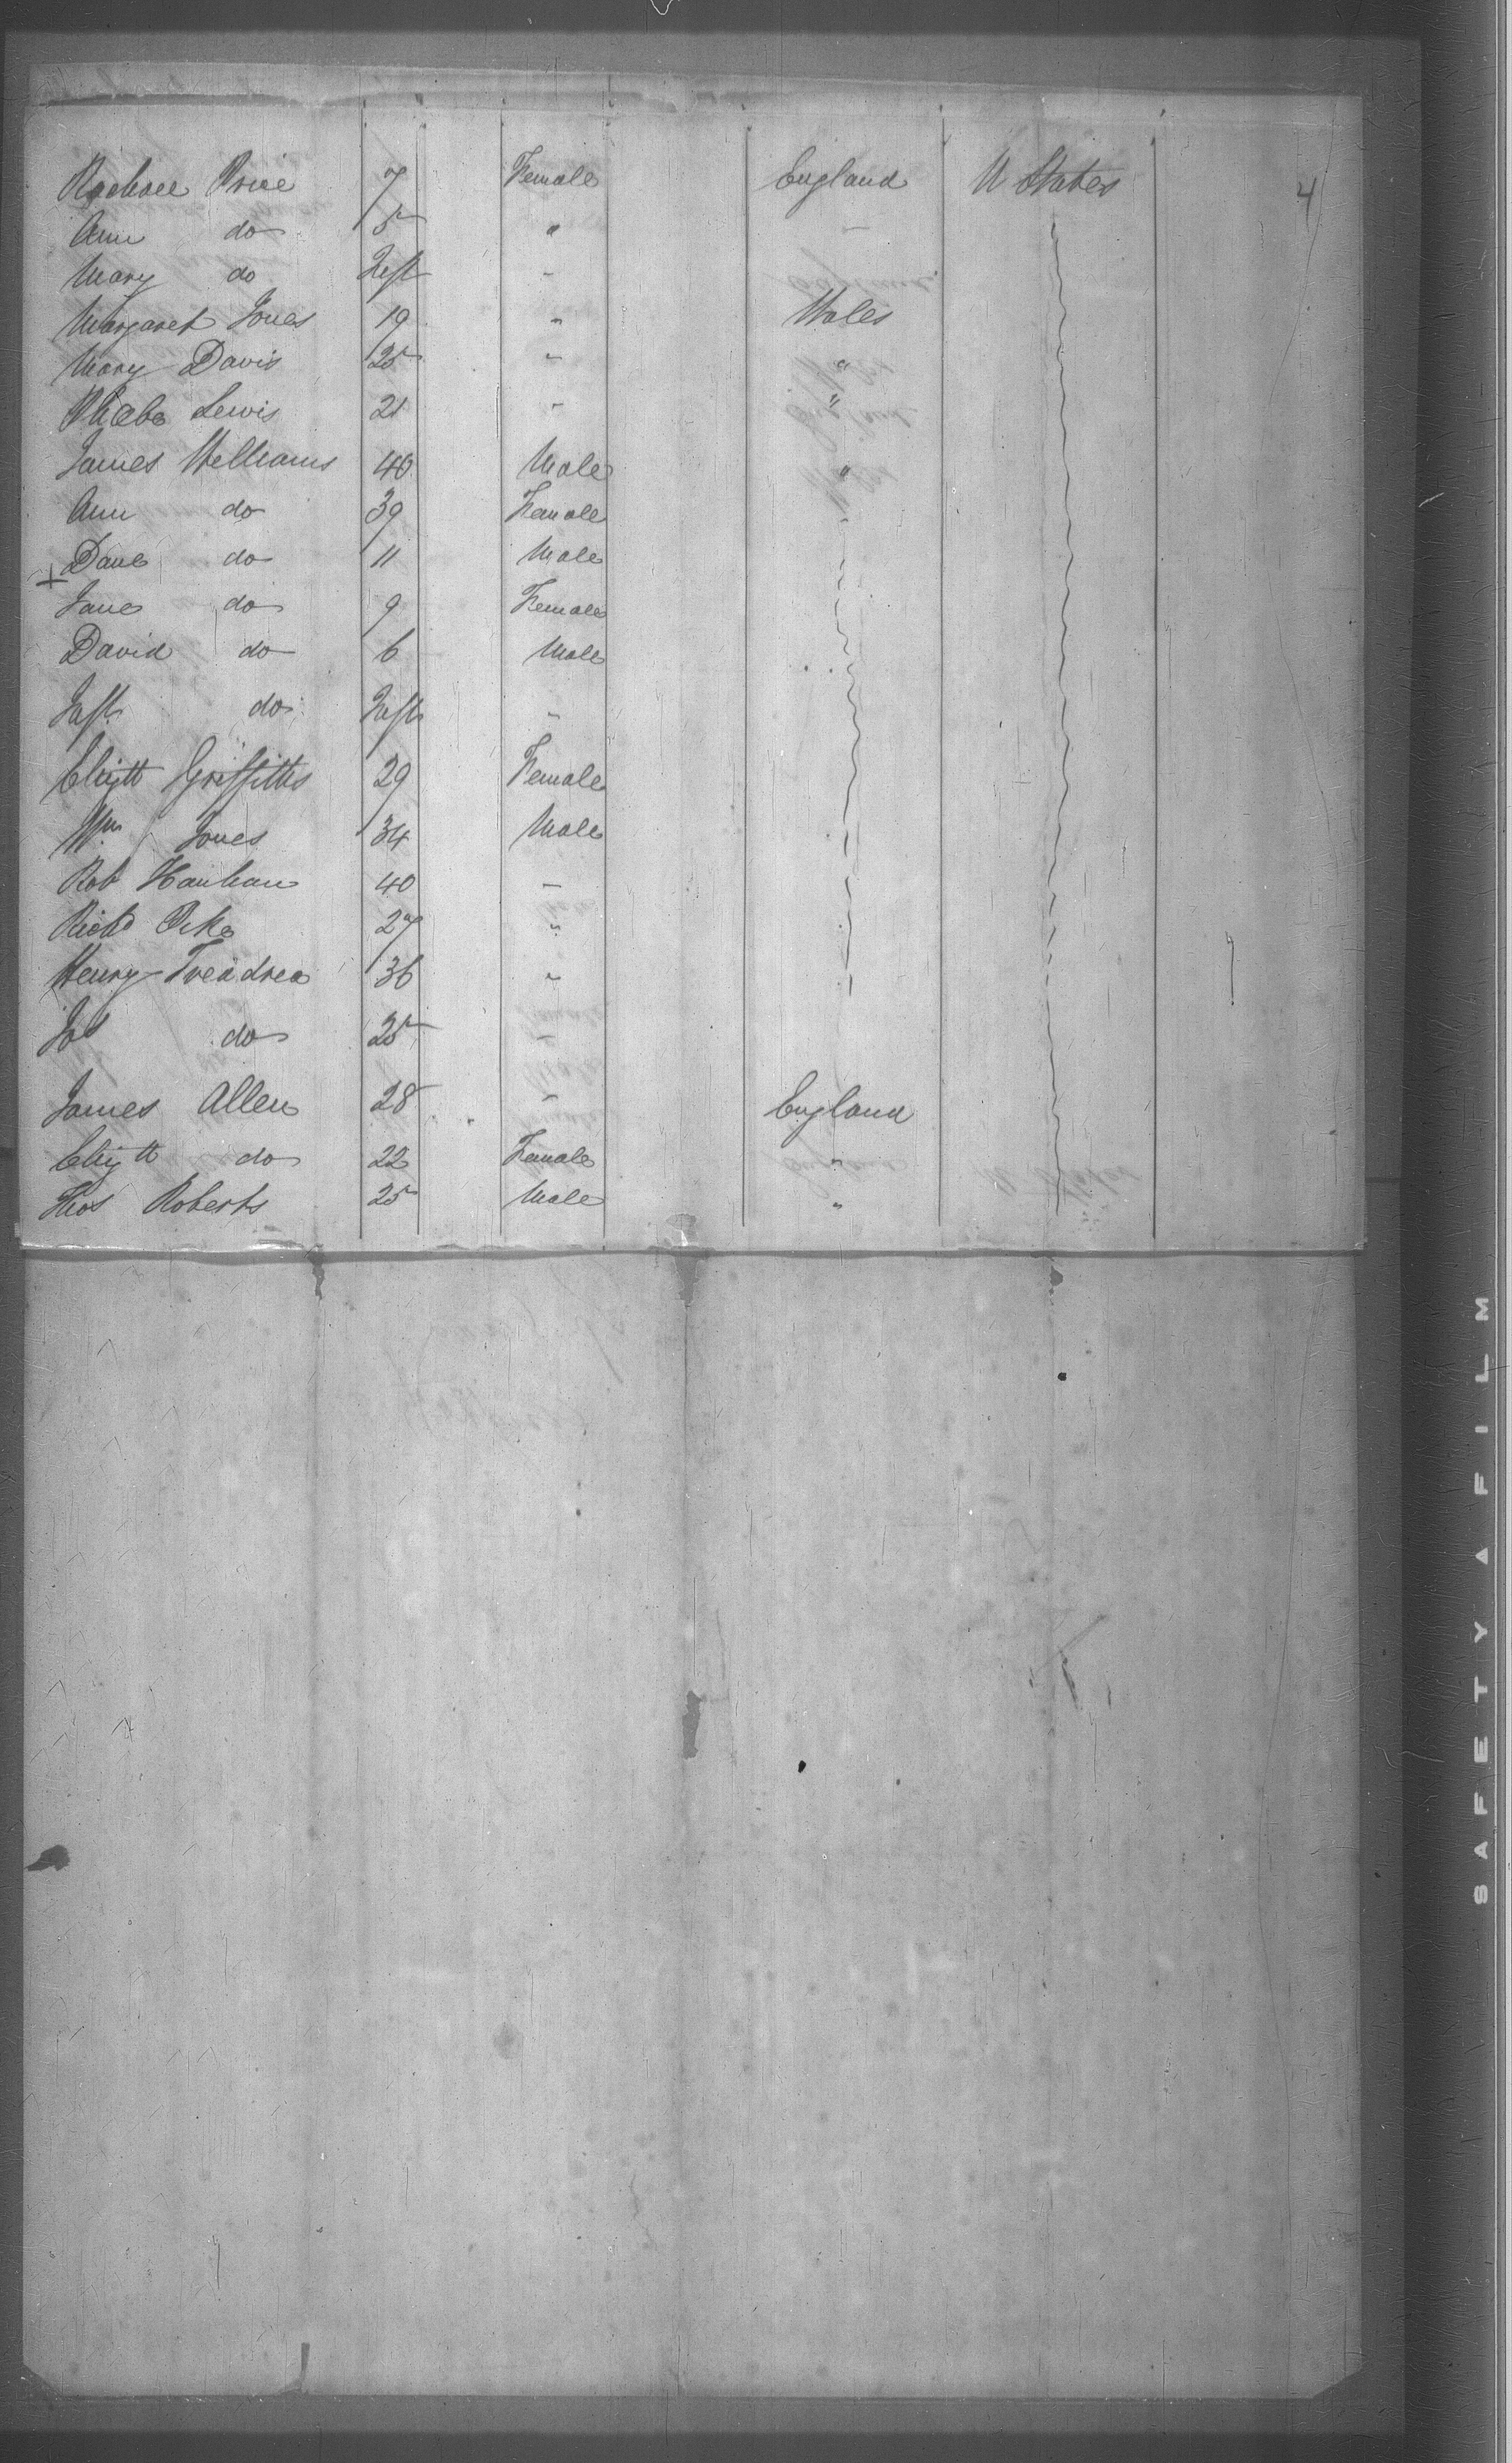 Rachael Price 7 Female England U States 4
Ann do 5 " –
Mary do Inft "
Margaret Jones 19 " Wales
Mary Davis 25 " "
Phebe Lewis 21 " "
James Williams 40 Male "
Ann do 39 Female "
+ Dane do 11 Male
Jane do 9 Female
David do 6 Male
Inft do Inft "
Elizth Griffiths 29 Female
Wm Jones 34 Male
Rob Hanhan 40 –
Richd 27 "
Henry Treadrea 36 "
Jas do 25 –
James Allen 28 " England
Elizth do 22 Female "
Thos Roberts 25 Male "
SAFETY A FILM